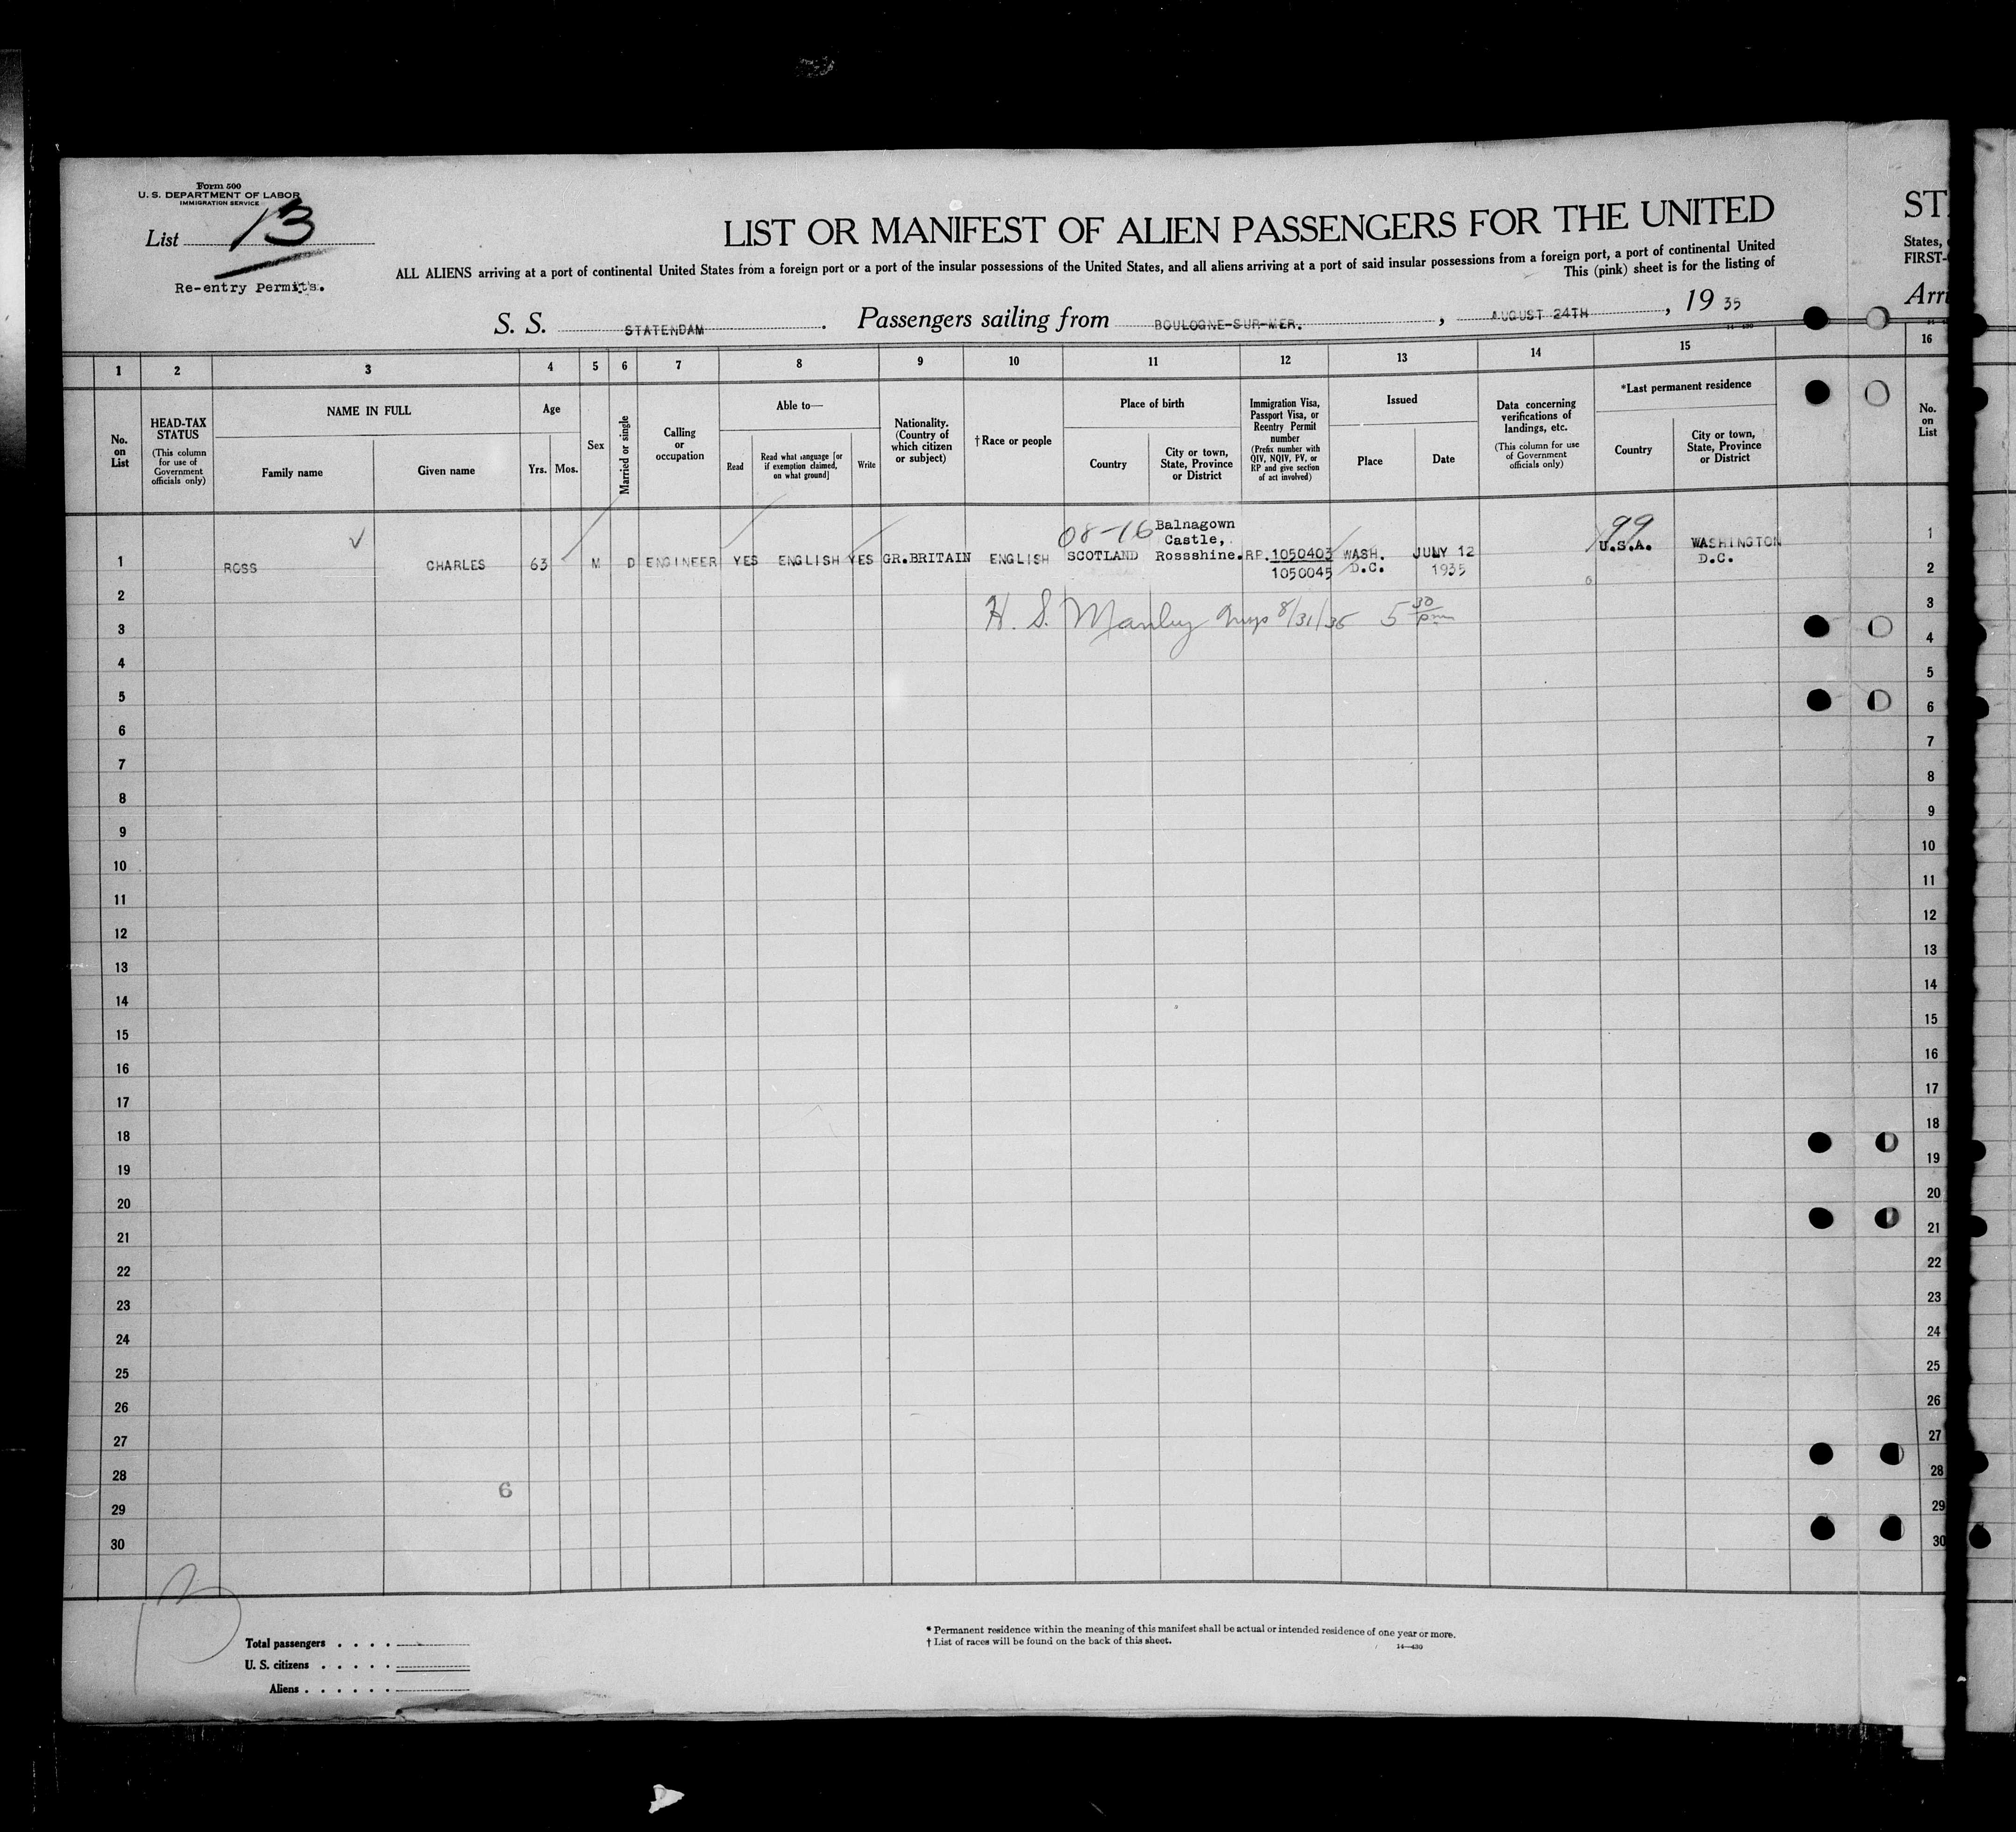 Form 500
U. S. DEPARTMENT OF LABOR
IMMIGRATION SERVICE
List 13
Re-entry Permits.
LIST OR MANIFEST OF ALIEN PASSENGERS FOR THE UNITED
ST
ALL ALIENS arriving at a port of continental United States from a foreign port or a port of the insular possessions of the United States, and all aliens arriving at a port of said insular possessions from a foreign port, a port of continental United
States,
This (pink) sheet is for the listing of
FIRST-
S. S. STATENDAM. Passengers sailing from BOULOGNE-SUR-MER. , AUGUST 24TH , 19 35
Arri
1 2 3 4 5 6 7 8 9 10 11 12 13 14 15 16
No. on List
HEAD-TAX STATUS (This column for use of Government officials only)
NAME IN FULL
Family name
Given name
Age
Yrs. Mos.
Sex
Married or single
Calling or occupation
Able to—
Read
Read what language [or if exemption claimed, on what ground]
Write
Nationality. (Country of which citizen or subject)
† Race or people
Place of birth
Country
City or town, State, Province or District
Immigration Visa, Passport Visa, or Reentry Permit number (Prefix number with QIV, NQIV, PV, or RP and give section of act involved)
Issued
Place
Date
Data concerning verifications of landings, etc. (This column for use of Government officials only)
*Last permanent residence
Country
City or town, State, Province or District
No. on List
08-16 Balnagown 99
Castle,
1 ROSS CHARLES 63 M D ENGINEER YES ENGLISH YES GR.BRITAIN ENGLISH SCOTLAND Rossshine. RP. 1050403 WASH. JULY 12 U.S.A. WASHINGTON 1
1050045 D.C. 1935 D.C.
2 2
H. S. Manley 8/31/35 5 30 pm
3 3
4 4
5 5
6 6
7 7
8 8
9 9
10 10
11 11
12 12
13 13
14 14
15 15
16 16
17 17
18 18
19 19
20 20
21 21
22 22
23 23
24 24
25 25
26 26
27 27
28 28
6
29 29
30 30
Total passengers . . . .
U. S. citizens . . . . .
Aliens . . . . . .
* Permanent residence within the meaning of this manifest shall be actual or intended residence of one year or more.
† List of races will be found on the back of this sheet.
14—430